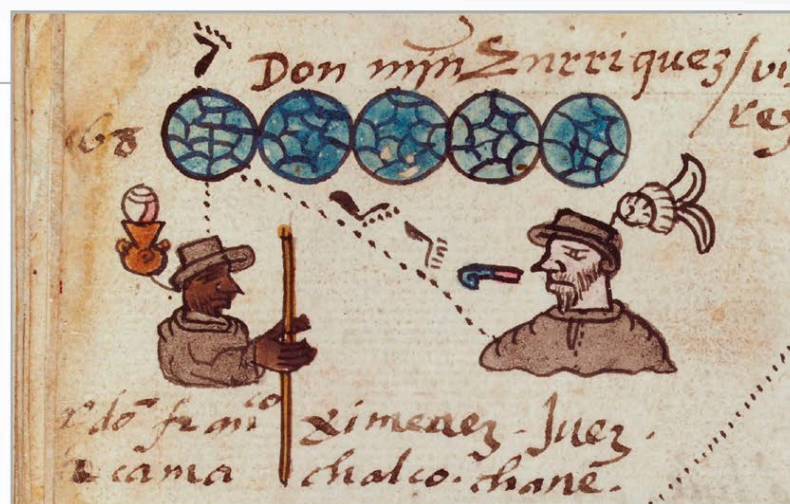 Don mṙn Enrriquez / vi
rey
68
dõ franco ximenez. Juez.
camachalco. chanē.